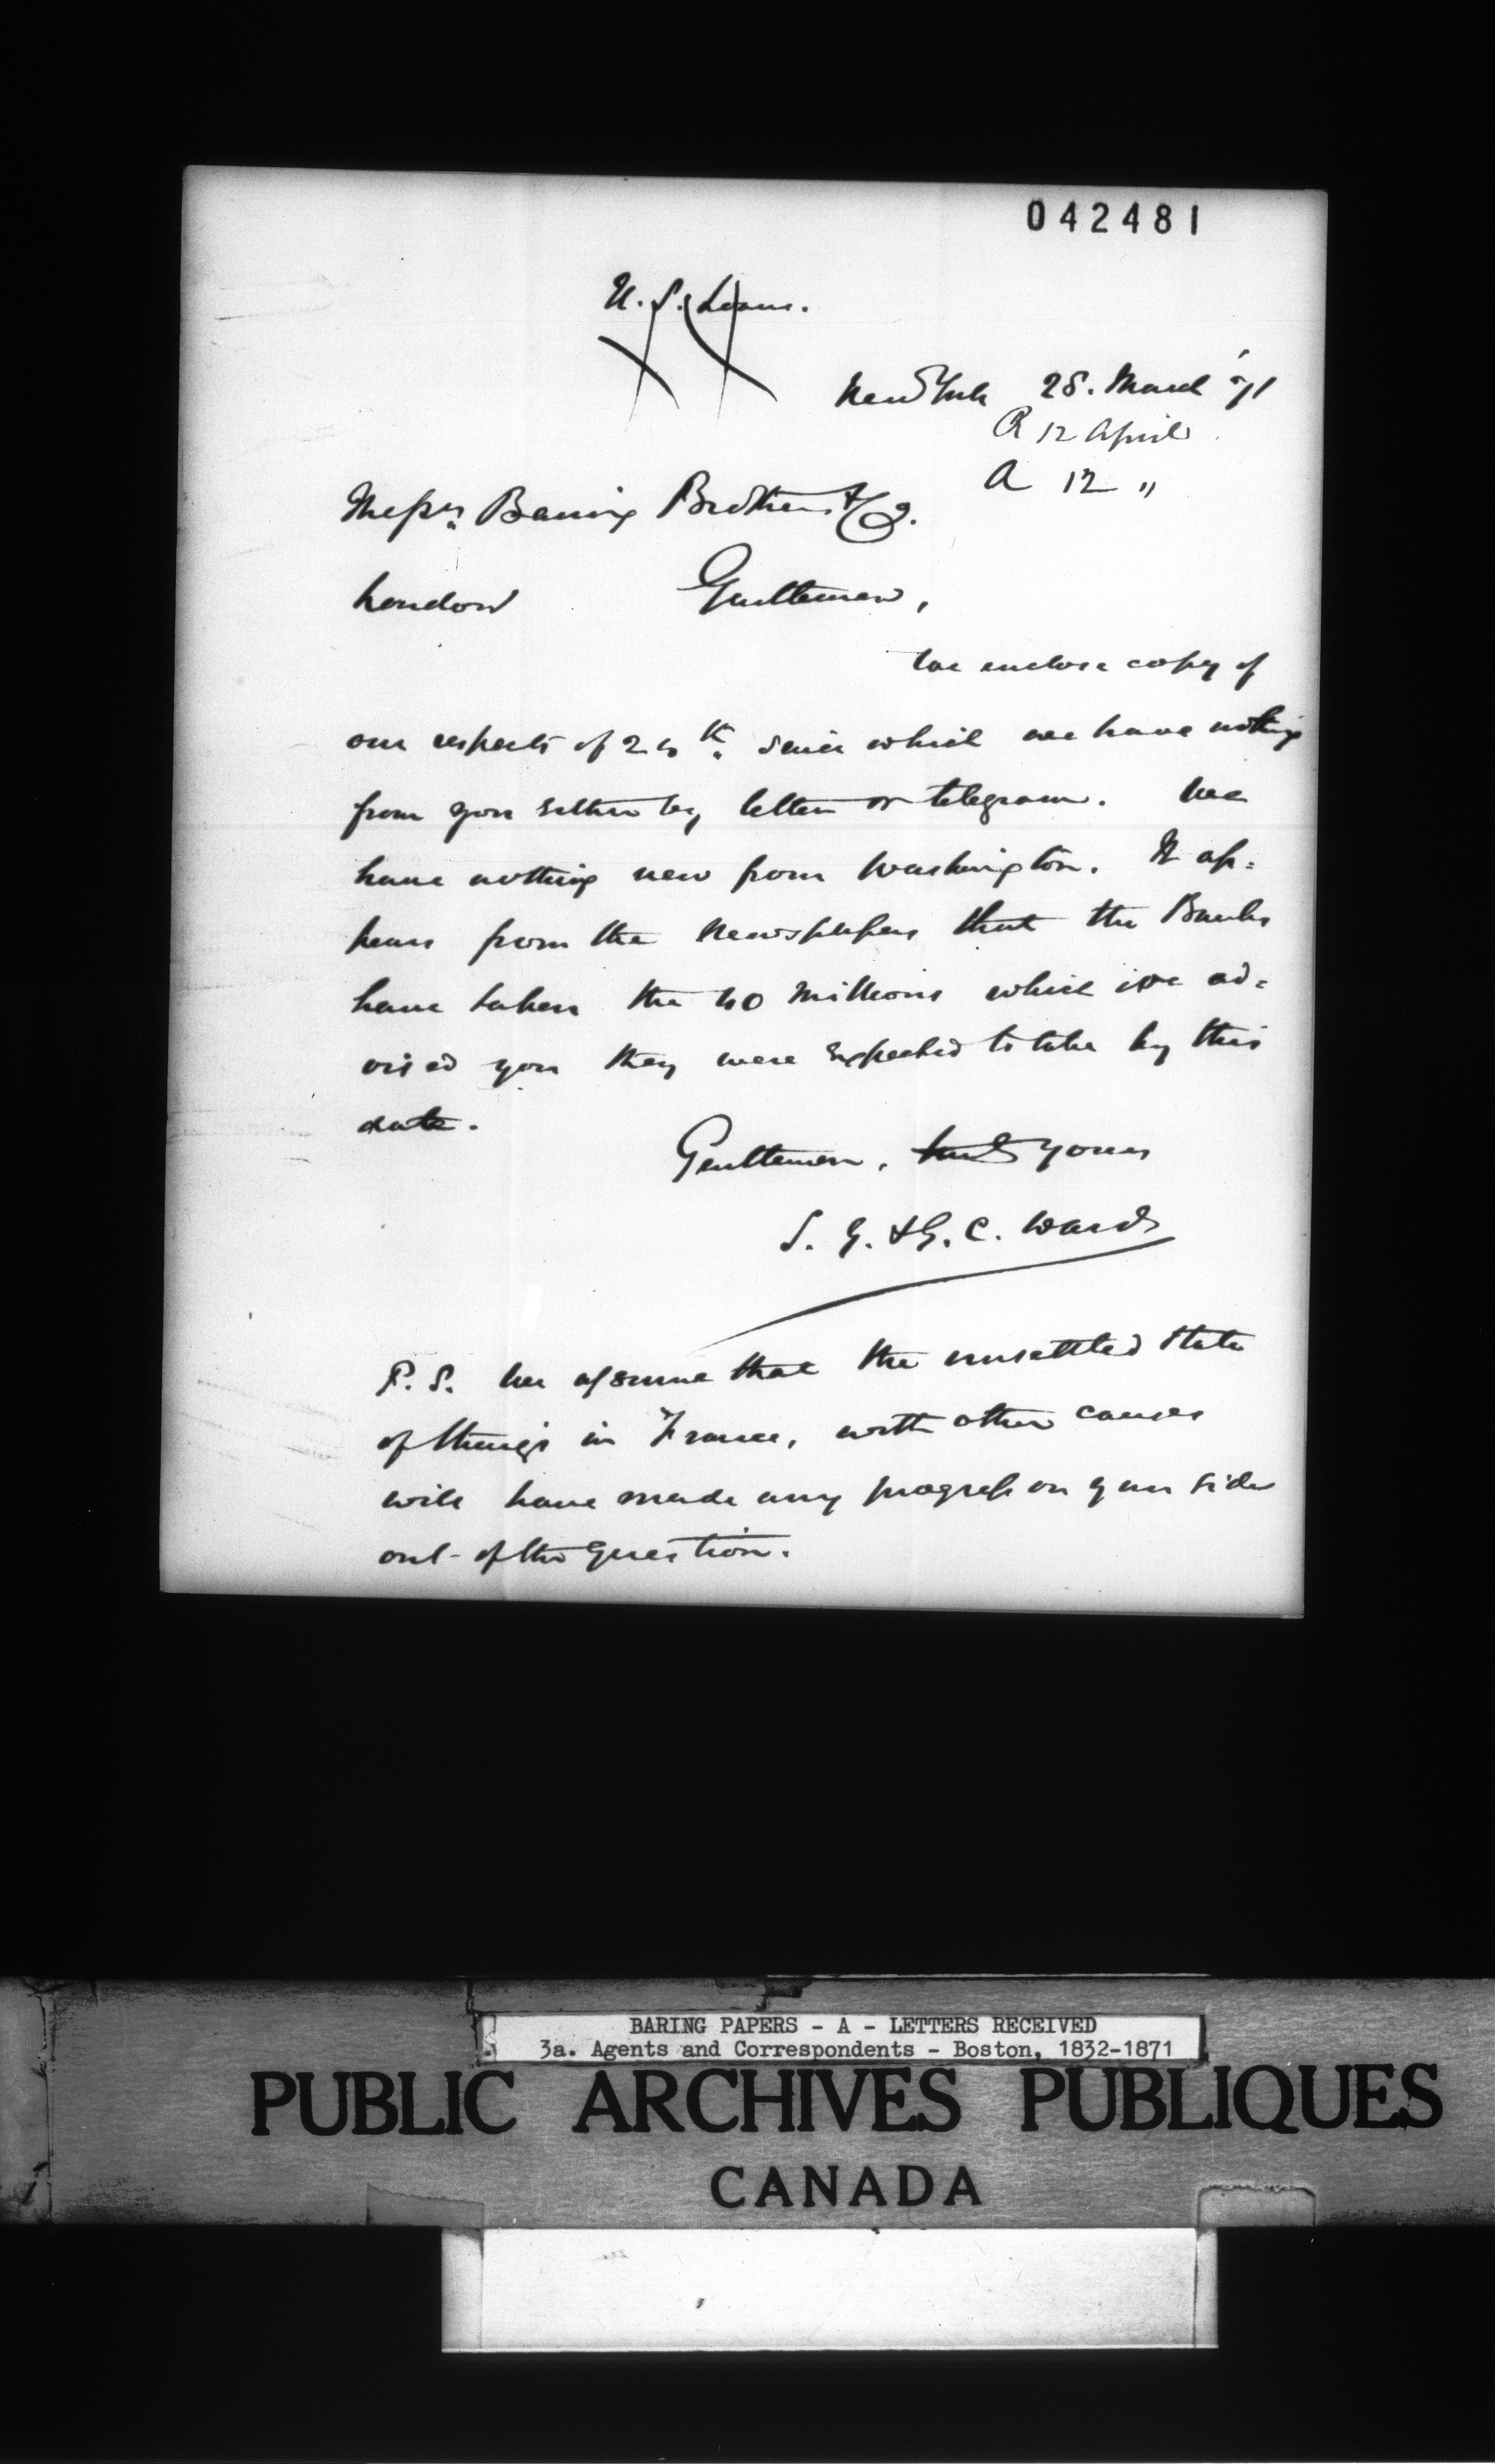 042481
U. S. Loans.
New York 28. March '71
R 12 April
A 12 "
Messrs. Baring Brothers & Co.
London Gentlemen,
We enclose copy of
our respects of 24th. since which we have nothing
from you either by letter or telegram. We
have nothing new from Washington. It ap=
pears from the Newspapers that the Banks
have taken the 40 Millions which we ad=
vised you they were expected to take by this
date.
Gentlemen, truly yours
S. G. & G. C. Ward
P. S. We assume that the unsettled state
of things in France, with other causes
will have made any progress on your side
out of the question.
BARING PAPERS - A - LETTERS RECEIVED
3a. Agents and Correspondents - Boston, 1832-1871
PUBLIC ARCHIVES PUBLIQUES
CANADA